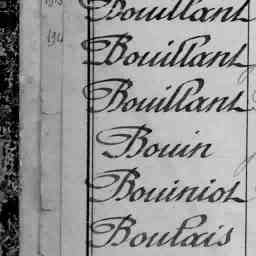 Bouillant
Bouillant
Bouillant
Bouin
Bouiniot
Boulais